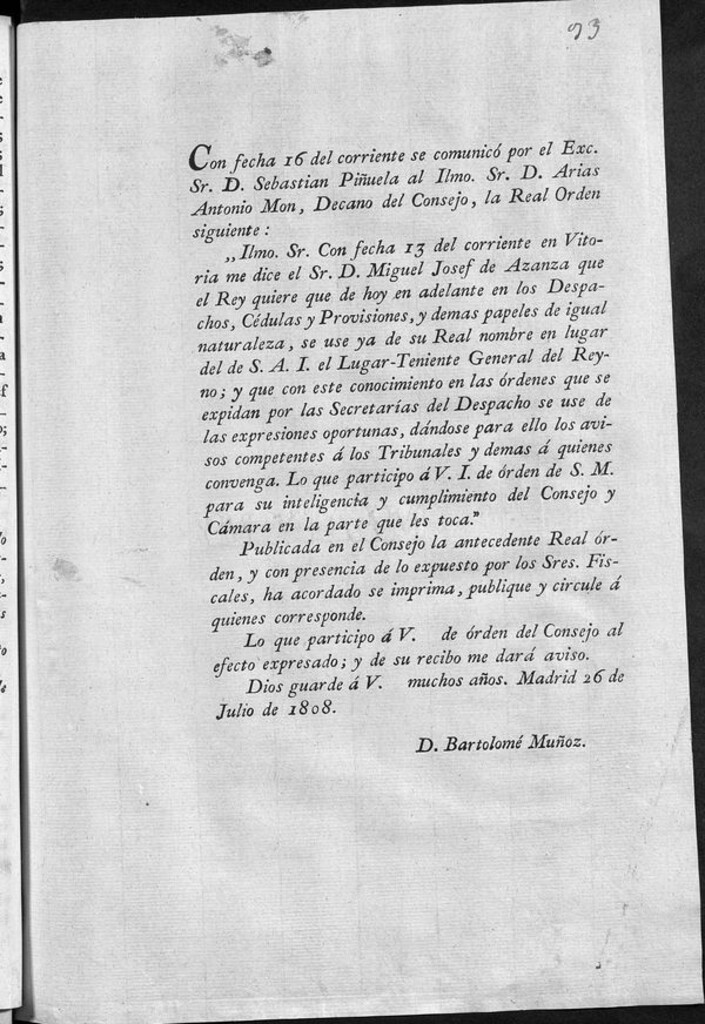 93
Con fecha 16 del corriente se comunicó por el Exc.
Sr. D. Sebastian Piñuela al Ilmo. Sr. D. Arias
Antonio Mon, Decano del Consejo, la Real Orden
siguiente:
„Ilmo. Sr. Con fecha 13 del corriente en Vito-
ria me dice el Sr. D. Miguel Josef de Azanza que
el Rey quiere que de hoy en adelante en los Despa-
chos, Cédulas y Provisiones, y demas papeles de igual
naturaleza, se use ya de su Real nombre en lugar
del de S. A. I. el Lugar-Teniente General del Rey-
no; y que con este conocimiento en las órdenes que se
expidan por las Secretarías del Despacho se use de
las expresiones oportunas, dándose para ello los avi-
sos competentes á los Tribunales y demas á quienes
convenga. Lo que participo á V. I. de órden de S. M.
para su inteligencia y cumplimiento del Consejo y
Cámara en la parte que les toca.”
Publicada en el Consejo la antecedente Real ór-
den, y con presencia de lo expuesto por los Sres. Fis-
cales, ha acordado se imprima, publique y circule á
quienes corresponde.
Lo que participo á V. de órden del Consejo al
efecto expresado; y de su recibo me dará aviso.
Dios guarde á V. muchos años. Madrid 26 de
Julio de 1808.
D. Bartolomé Muñoz.